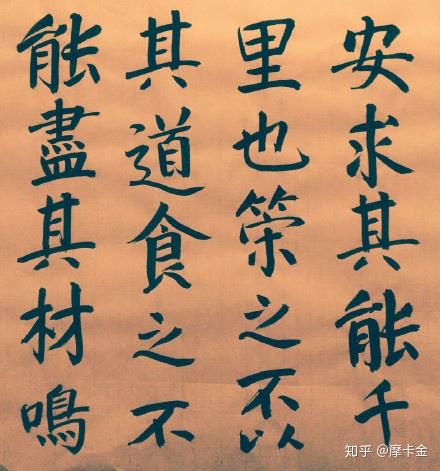 安求其能千
里也策之不以
其道食之不
能盡其材鳴
知乎 @摩卡金